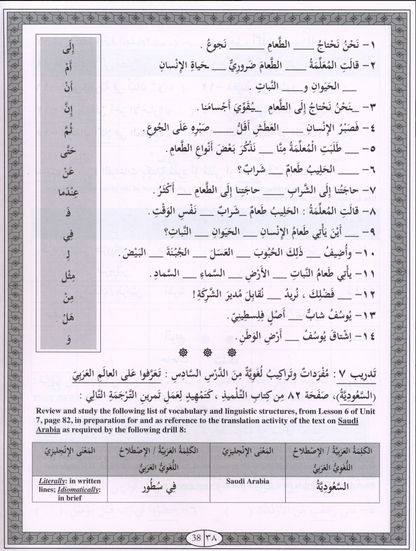 ١- نَحْنُ نَحْتاجُ ____ الطَّعامِ ____ نَجوعُ .
٢- قالَتِ المُعَلِّمَةُ ____ الطَّعامَ ضَروريٌّ __حَياةِ الإنْسانِ
____ الحَيَوانِ و____ النَّباتِ .
٣- __نَحْنُ نَحْتاجُ إلَى الطَّعامِ __يُقَوِّيَ أجْسامَنا.
٤- فَصَبْرُ الإنْسانِ ____ العَطَشِ أقَلُّ ____ صَبْرِهِ عَلَى الجُوعِ .
٥- ____ طَلَبَتِ المُعَلِّمَةُ مِنَّا ___ نَذْكُرَ بَعْضَ أنْواعِ الطَّعامِ.
٦- ____ الحَليبُ طَعامٌ ____ شَرابٌ؟
٧- حاجَتُنا إلَى الشَّرابِ ____ حاجَتِنا إلَى الطَّعامِ ___ أكْثَرُ.
٨- قالَتِ المُعَلِّمَةُ : الحَليبُ طَعامٌ __شَرابٌ __ نَفْسِ الوَقْتِ.
٩- ___ أيْنَ يَأتي طَعامُ الإنْسانِ ___ الحَيَوانِ ___ النَّباتِ؟
١٠- وأُضيفُ ___ ذَلِكَ الحُبُوبَ ___ العَسَلَ ___ الجُبْنَةَ ___ البَيْضَ.
١١- يأتي طَعامُ النَّباتِ ___ الأرْضِ ___ السَّماءِ ___ السَّمادِ.
١٢- ___ فَضْلِكَ ، نُريدُ ___ نُقابِلَ مُديرَ الشَّرِكَةِ!
١٣- يُوسُفُ شابٌّ ___ أصْلٍ فِلِسْطينيٍّ.
١٤- اِشْتاقَ يُوسُفُ ___ أرْضِ الوَطَنِ.
إلَى
أمْ
أنْ
إنَّ
ثُمَّ
حَتَّى
عَنْ
عِنْدَما
فَـ
في
لِـ
مِثْل
مِنْ
هَلْ
وَ
تَدريب ٧ : مُفْرَداتٌ وتَراكيبُ لُغَويَّةٌ مِنَ الدَّرْسِ السَّادِسِ : تَعَرَّفوا على العالَمِ العَرَبيِّ
(السَّعُوديَّة)، صَفْحَة ٨٢ مِن كِتابِ التِّلْميذِ ، كَتَمْهيدٍ لِعَمَلِ تَمرينِ التَّرْجَمَةِ التَّالِي :
Review and study the following list of vocabulary and linguistic structures, from Lesson 6 of Unit
7, page 82, in preparation for and as reference to the translation activity of the text on Saudi
Arabia as required by the following drill 8:
الكَلِمَةُ العَرَبيَّةُ / الإصْطِلاحُ اللُّغَويُّ العَرَبيُّ
المَعْنَى الإنْجليزيّ
الكَلِمَةُ العَرَبيَّةُ / الإصْطِلاحُ اللُّغَويُّ العَرَبيُّ
المَعْنَى الإنْجليزيّ
السَّعُوديَّةُ
Saudi Arabia
في سُطُور
Literally: in written
lines; Idiomatically:
in brief
38 ٣٨